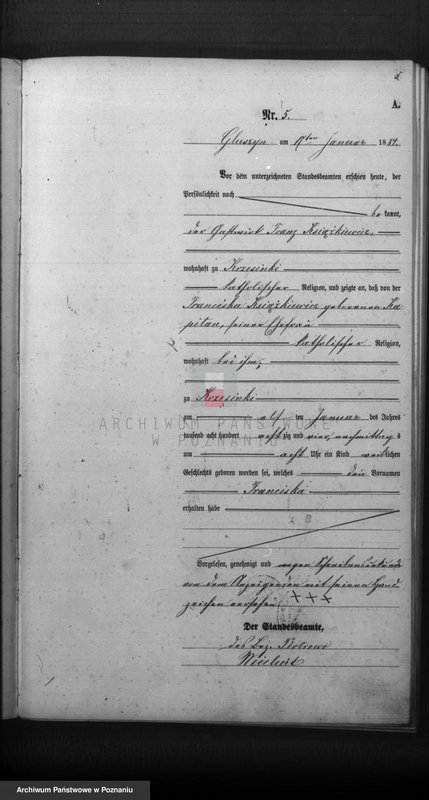 5
A.
Nr. 5.
Gluszyn am 17ten Januar 1884.
Vor dem unterzeichneten Standesbeamten erschien heute, der
Persönlichkeit nach
be kannt,
der Gastwirt Franz Książkiewicz,
wohnhaft zu Krzesinki
katholischer Religion, und zeigte an, daß von der
Franciska Książkiewicz geborenen Ka
pitan, seiner Ehefrau
katholischer Religion,
wohnhaft bei ihm,
zu Krzesinki
am elf ten Januar des Jahres
tausend acht hundert acht zig und vier, nachmittag s
um acht Uhr ein Kind weiblichen
Geschlechts geboren worden sei, welches den Vornamen
Franciska
erhalten habe
Vorgelesen, genehmigt und wegen Schreibensunkunde
von dem Anzeigenden mit seinen Hand
zeichen versehen. +++
Der Standesbeamte,
ARCHIWUM PAŃSTWOWE
W POZNANIU
Archiwum Państwowe w Poznaniu